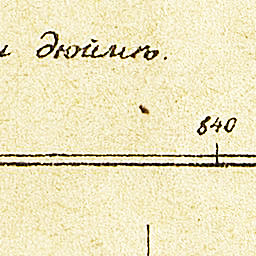 дюймъ.
840